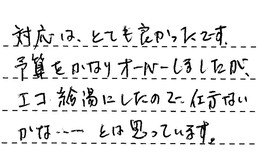 対応は、とても良かったです。
予算をかなりオーバーしましたが、
エコ給湯にしたので、仕方ない
かな…… とは思っています。